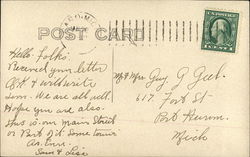 POST CARD
Hello Folks.
Received your letter
O.K. & will write
soon. We are all well.
Hope you are also.
This is our Main Street
or Part of it. Some town
As. Ever.
Sam &
Mr & Mrs Guy G
617. Fort St
Port Huron
Mich